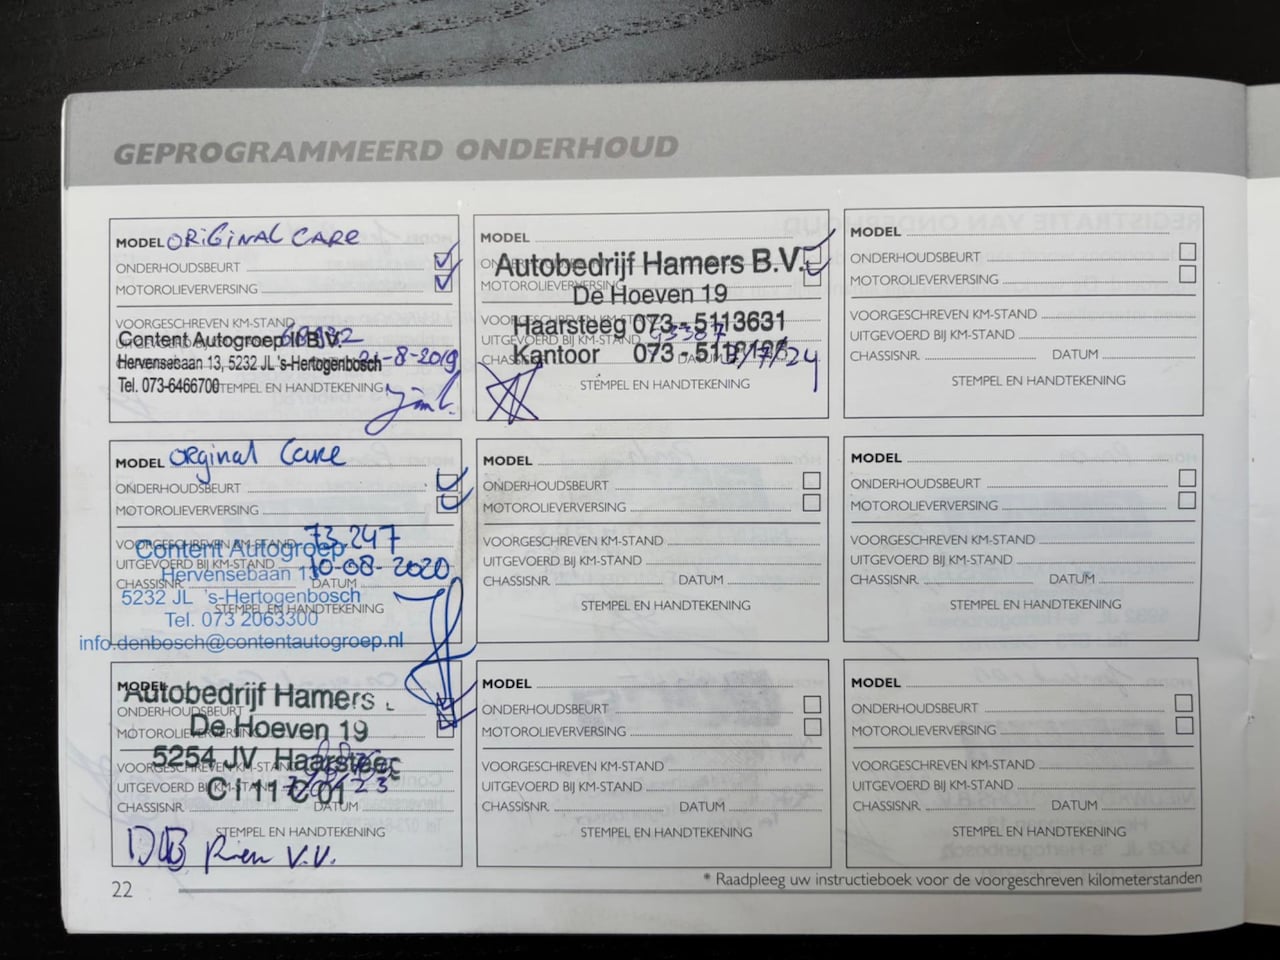 GEPROGRAMMEERD ONDERHOUD
MODEL ORIGINAL CARE
ONDERHOUDSBEURT
MOTOROLIEVERVERSING
VOORGESCHREVEN KM-STAND
UITGEVOERD BIJ KM-STAND
Content Autogroep II B.V.
Hervensebaan 13, 5232 JL 's-Hertogenbosch
-8-2019
Tel. 073-6466700
STEMPEL EN HANDTEKENING
MODEL Orginal Care
ONDERHOUDSBEURT
MOTOROLIEVERVERSING
VOORGESCHREVEN KM-STAND 73.247
Content Autogroep
UITGEVOERD BIJ KM-STAND 10-08-2020
Hervensebaan
CHASSISNR. DATUM
5232 JL 's-Hertogenbosch
STEMPEL EN HANDTEKENING
Tel. 073 2063300
info.denbosch@contentautogroep.nl
MODEL
Autobedrijf Hamers
ONDERHOUDSBEURT
De Hoeven 19
MOTOROLIEVERVERSING
5254 JV Haarsteeg
VOORGESCHREVEN KM-STAND
UITGEVOERD BIJ KM-STAND
CHASSISNR. DATUM
STEMPEL EN HANDTEKENING
MODEL
ONDERHOUDSBEURT
Autobedrijf Hamers B.V.
MOTOROLIEVERVERSING
De Hoeven 19
VOORGESCHREVEN KM-STAND
Haarsteeg 073-5113631
UITGEVOERD BIJ KM-STAND
Kantoor 073-
/7/24
STEMPEL EN HANDTEKENING
MODEL
ONDERHOUDSBEURT
MOTOROLIEVERVERSING
VOORGESCHREVEN KM-STAND
UITGEVOERD BIJ KM-STAND
CHASSISNR. DATUM
STEMPEL EN HANDTEKENING
MODEL
ONDERHOUDSBEURT
MOTOROLIEVERVERSING
VOORGESCHREVEN KM-STAND
UITGEVOERD BIJ KM-STAND
CHASSISNR. DATUM
STEMPEL EN HANDTEKENING
MODEL
ONDERHOUDSBEURT
MOTOROLIEVERVERSING
VOORGESCHREVEN KM-STAND
UITGEVOERD BIJ KM-STAND
CHASSISNR. DATUM
STEMPEL EN HANDTEKENING
MODEL
ONDERHOUDSBEURT
MOTOROLIEVERVERSING
VOORGESCHREVEN KM-STAND
UITGEVOERD BIJ KM-STAND
CHASSISNR. DATUM
STEMPEL EN HANDTEKENING
MODEL
ONDERHOUDSBEURT
MOTOROLIEVERVERSING
VOORGESCHREVEN KM-STAND
UITGEVOERD BIJ KM-STAND
CHASSISNR. DATUM
STEMPEL EN HANDTEKENING
* Raadpleeg uw instructieboek voor de voorgeschreven kilometerstanden
22